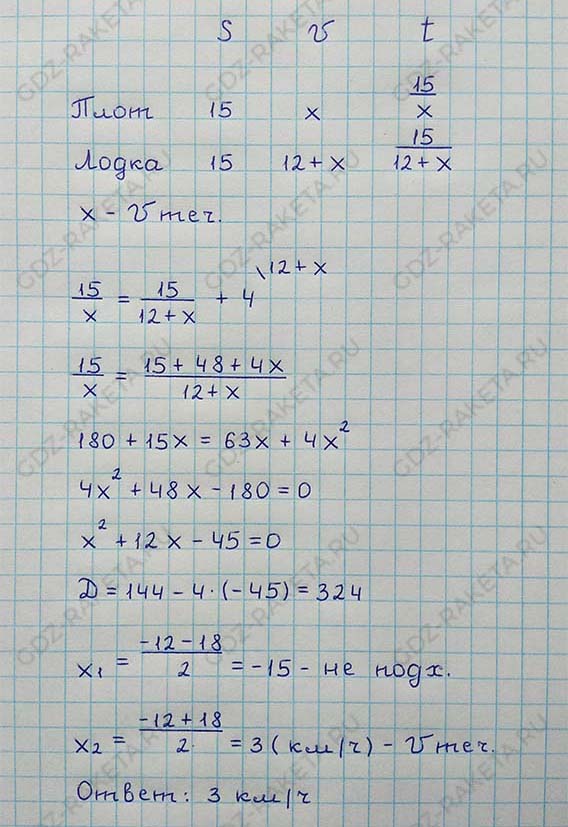 S v t
Плот 15 x 15/x
Лодка 15 12+x 15/(12+x)
x - v теч.
15/x = 15/(12+x) + 4 \12+x
15/x = (15+48+4x)/(12+x)
180+15x = 63x+4x²
4x²+48x-180=0
x²+12x-45=0
Д=144-4·(-45)=324
x₁ = (-12-18)/2 = -15 - не подх.
x₂ = (-12+18)/2 = 3 (км/ч) - v теч.
Ответ: 3 км/ч
GDZ-RAKETA.RU